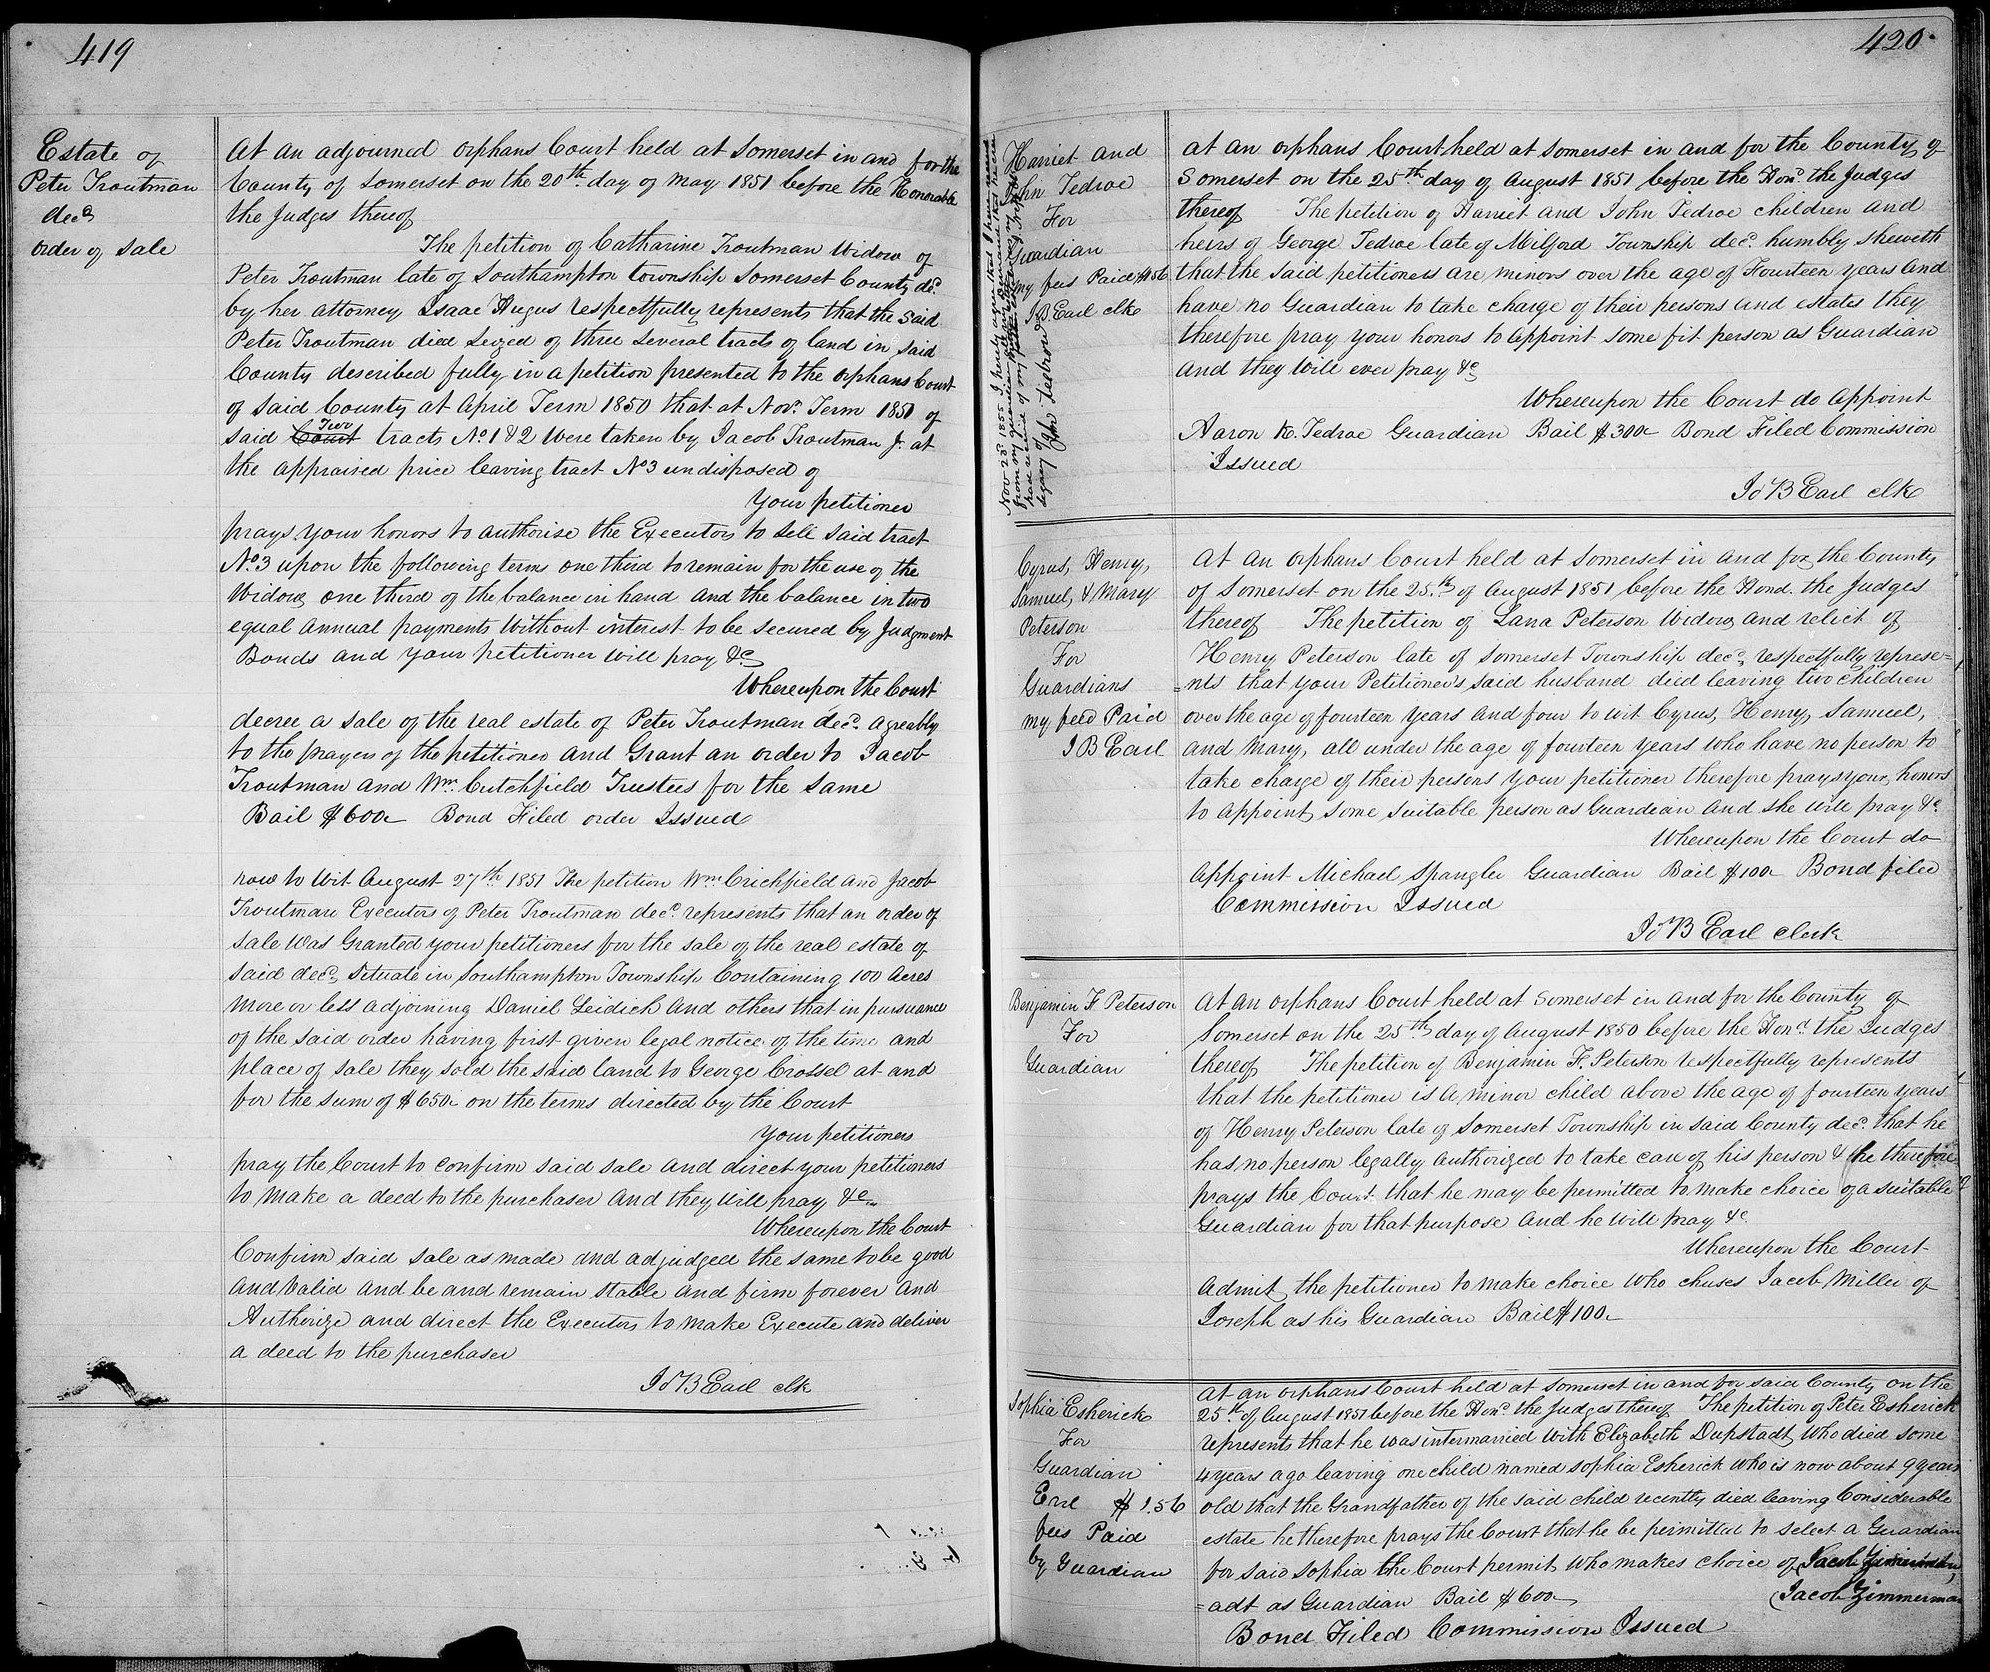 419
Estate of
Peter Troutman
decd
order of Sale
At an adjourned orphans Court held at Somerset in and for the
County of Somerset on the 20th day of May 1851 before the Honorable
the Judges thereof
The petition of Catharine Troutman Widow of
Peter Troutman late of Southampton township Somerset County decd
by her attorney Isaac Hugus respectfully represents that the said
Peter Troutman died Seized of three Several tracts of land in said
County described fully in a petition presented to the orphans Court
of said County at April Term 1850 that at Novr Term 1850 of
said Court Two tracts No 1 & 2 Were taken by Jacob Troutman Jr at
the appraised price leaving tract No 3 undisposed of
Your petitioner
prays your honors to authorise the Executors to Sell said tract
No 3 upon the following terms one third to remain for the use of the
Widow one third of the balance in hand and the balance in two
equal annual payments Without interest to be Secured by Judgment
Bonds and your petitioner Will pray &c
Whereupon the Court
decree a sale of the real estate of Peter Troutman decd agreably
to the prayers of the petitioner and Grant an order to Jacob
Troutman and Wm Cutchfield Trustees for the Same
Bail $600 Bond Filed order Issued
now to Wit August 27th 1851 The petition Wm Crichfield and Jacob
Troutman Executors of Peter Troutman decd represents that an order of
Sale Was Granted your petitioners for the sale of the real estate of
said decd Situate in Southampton Township Containing 100 Acres
More or less adjoining Daniel Leidick and others that in pursuance
of the said order having first given legal notice of the time and
place of sale they sold the said land to George Crossel at and
for the Sum of $650 on the terms directed by the Court
Your petitioners
pray the Court to Confirm said sale and direct your petitioners
to Make a deed to the purchaser and they Will pray &c
Whereupon the Court
Confirm said sale as made and adjudged the same to be good
and Valid and be and remain stable and firm forever and
Authorize and direct the Executors to Make Execute and deliver
a deed to the purchaser
Jos B Earl clk
420
Harriet and
John Tedroe
For
Guardian
my fees Paid $1.56
J B Earl clk
At an orphans Court held at Somerset in and for the County of
Somerset on the 25th day of August 1851 before the Hond the Judges
thereof The petition of Harriet and John Tedroe children and
heirs of George Tedroe late of Milford Township decd humbly sheweth
that the said petitioners are minors over the age of Fourteen years and
have no Guardian to take charge of their persons and estates they
therefore pray your honors to Appoint some fit person as Guardian
and they Will ever pray &c
Whereupon the Court do Appoint
Aaron K. Tedroe Guardian Bail $300 Bond Filed Commission
Issued
Jos B Earl clk
Cyrus, Henry,
Samuel, & Mary
Peterson
For
Guardians
my feed Paid
J B Earl
At an orphans Court held at Somerset in and for the County
of Somerset on the 25th of August 1851 before the Hond the Judges
thereof The petition of Lana Peterson Widow and relict of
Henry Peterson late of Somerset Township decd respectfully represe-
=nts that your Petitioners said husband died leaving two children
over the age of fourteen years and four to wit Cyrus, Henry, Samuel,
and Mary, all under the age of fourteen years who have no person to
take charge of their persons your petitioner therefore prays your honors
to Appoint some suitable person as Guardian and she Will pray &c
Whereupon the Court do
Appoint Michael Spangler Guardian Bail $100 Bond filed
Commission Issued
Jos B Earl clerk
Benjamin F Peterson
For
Guardian
At an orphans Court held at Somerset in and for the County of
Somerset on the 25th day of August 1850 before the Hond the Judges
thereof The petition of Benjamin F. Peterson respectfully represents
that the petitioner is a minor child above the age of fourteen years
of Henry Peterson late of Somerset Township in said County decd that he
has no person legally authorized to take care of his person & he therefore
prays the Court that he may be permitted to make choice of a suitable
Guardian for that purpose and he Will pray &c
Whereupon the Court
Admit the petitioner to make choice Who chuses Jacob Miller of
Joseph as his Guardian Bail $100
Sophia Esherick
For
Guardian
Erl $1.56
fees Paid
by Guardian
At an orphans Court held at Somerset in and for said County on the
25th of August 1851 before the Hond the Judges thereof The petition of Peter Esherick
represents that he was intermarried with Elizabeth Dupstadt Who died some
4 years ago leaving one child named Sophia Esherick Who is now about 9 years
old that the Grandfather of the said child recently died leaving Considerable
estate he therefore prays the Court that he be permitted to select a Guardian
for said Sophia the Court permit Who makes choice of Jacob Zimmerman
=adt as Guardian Bail $600 (Jacob Zimmerman
Bond Filed Commission Issued